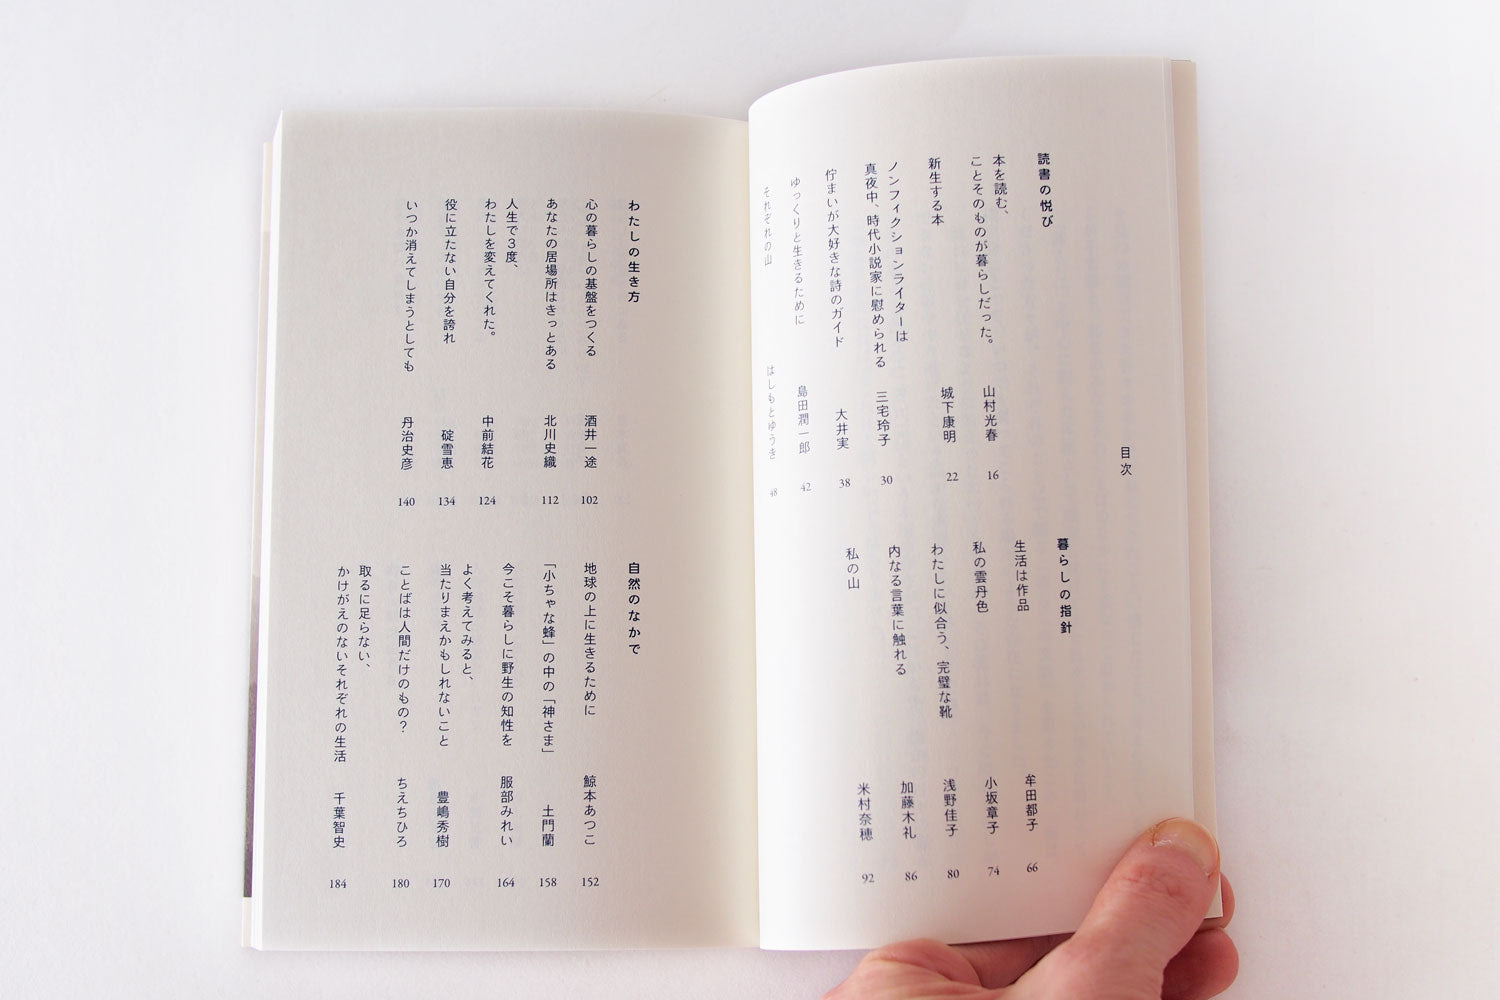 目次
読書の悦び
本を読む、
ことそのものが暮らしだった。
山村光春
16
新生する本
城下康明
22
ノンフィクションライターは
真夜中、時代小説家に慰められる
三宅玲子
30
佇まいが大好きな詩のガイド
大井実
38
ゆっくりと生きるために
島田潤一郎
42
それぞれの山
はしもとゆうき
48
暮らしの指針
生活は作品
牟田都子
66
私の雲丹色
小坂章子
74
わたしに似合う、完璧な靴
浅野佳子
80
内なる言葉に触れる
加藤木礼
86
私の山
米村奈穂
92
わたしの生き方
心の暮らしの基盤をつくる
酒井一途
102
あなたの居場所はきっとある
北川史織
112
人生で3度、
わたしを変えてくれた。
中前結花
124
役に立たない自分を誇れ
碇雪恵
134
いつか消えてしまうとしても
丹治史彦
140
自然のなかで
地球の上に生きるために
鯨本あつこ
152
「小ちゃな蜂」の中の「神さま」
土門蘭
158
今こそ暮らしに野生の知性を
服部みれい
164
よく考えてみると、
当たりまえかもしれないこと
豊嶋秀樹
170
ことばは人間だけのもの？
ちえちひろ
180
取るに足らない、
かけがえのないそれぞれの生活
千葉智史
184